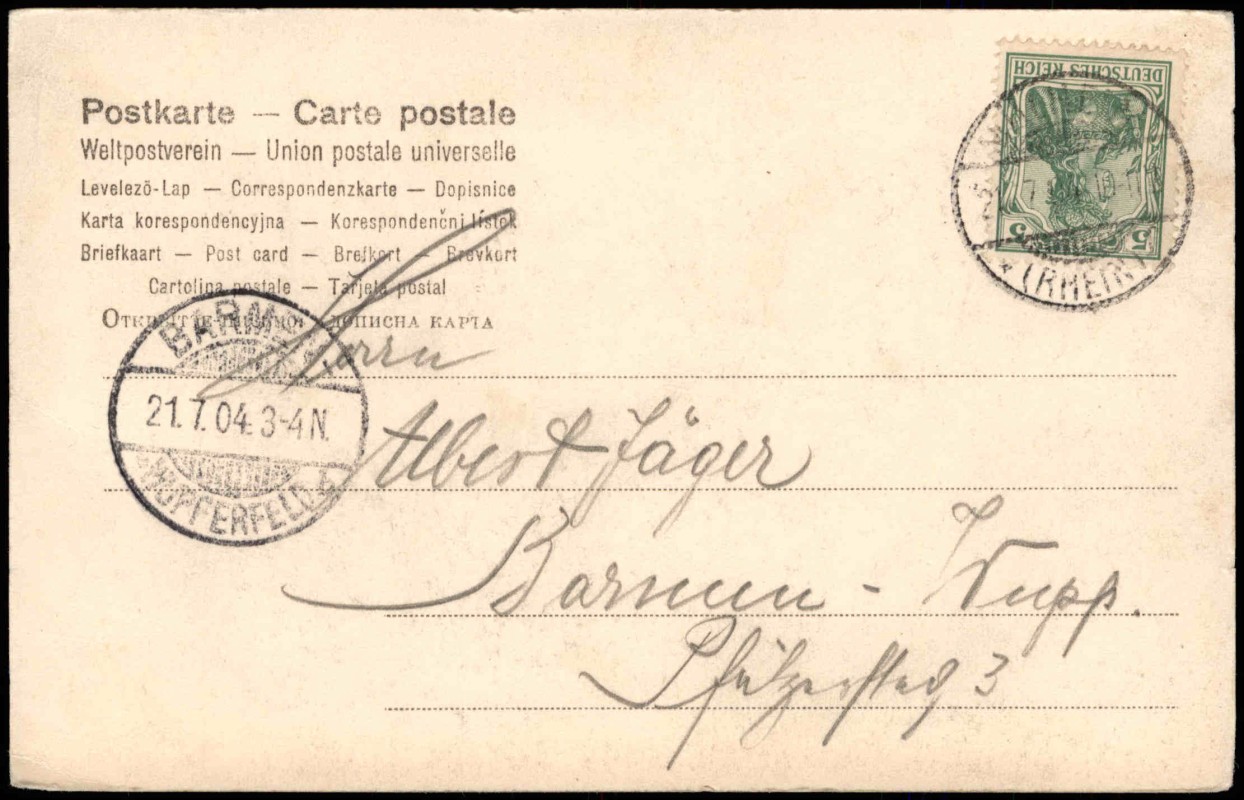 Postkarte — Carte postale
Weltpostverein — Union postale universelle
Levelezõ-Lap — Correspondenzkarte — Dopisnice
Karta korespondencyjna — Korespondenční lístok
Briefkaart — Post card — Brefkort — Brevkort
Cartolina postale — Tarjeta postal
ДОПИСНА КАРТА
DEUTSCHES REICH
5 5
(RHEIN)
BARM
21.7.04. 3-4 N.
WUPFERFELD
Herrn
Albert Jäger
Barmen - Wupp.
3